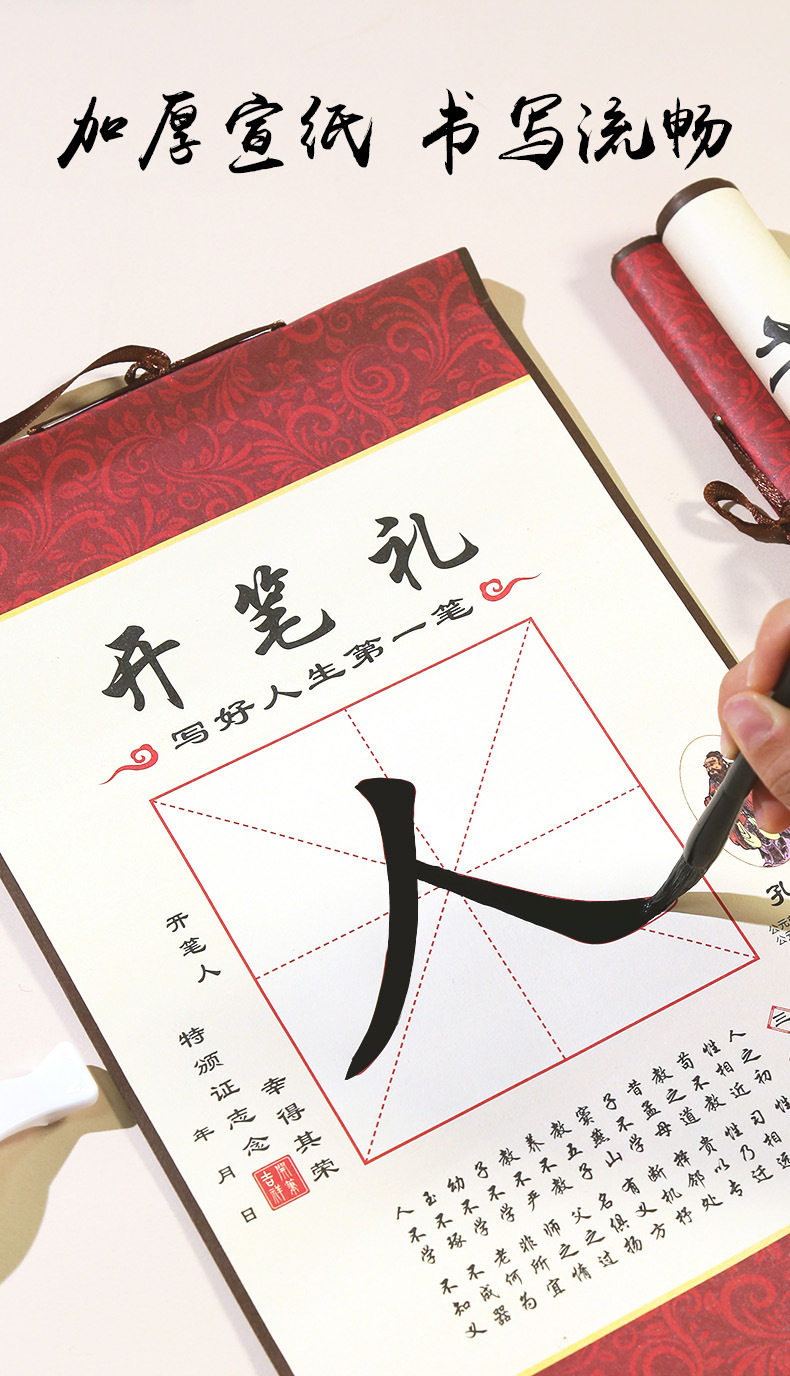 加厚宣纸 书写流畅
开笔礼
写好人生第一笔
人
开笔人
幸得其荣
特颁证志念
年月日
开笔吉祥
孔
三
人之初 性
性相近 习相远
苟不教 性乃迁
教之道 贵以专
昔孟母 择邻处
子不学 断机杼
窦燕山 有义方
教五子 名俱扬
养不教 父之过
教不严 师之惰
子不学 非所宜
幼不学 老何为
玉不琢 不成器
人不学 不知义